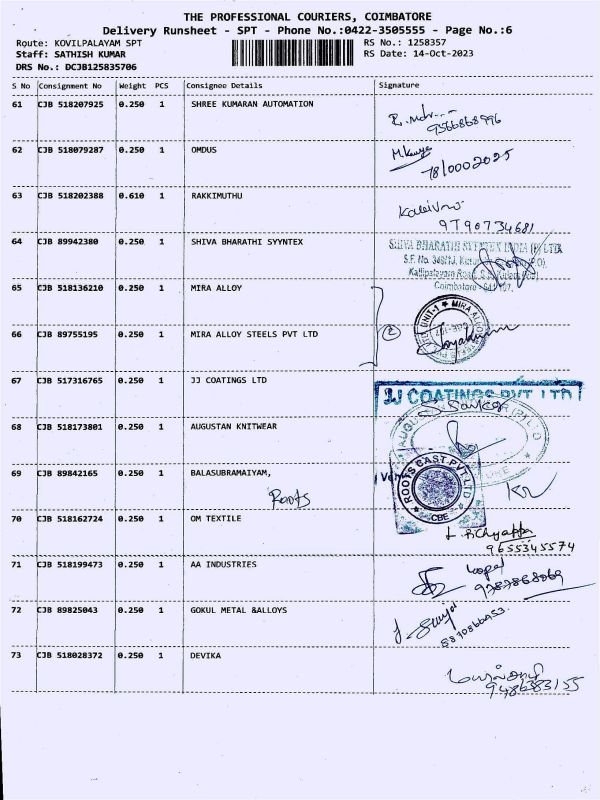 THE PROFESSIONAL COURIERS, COIMBATORE
Delivery Runsheet - SPT - Phone No.:0422-3505555 - Page No.:6
Route: KOVILPALAYAM SPT RS No.: 1258357
Staff: SATHISH KUMAR RS Date: 14-Oct-2023
DRS No.: DCJB125835706
S No Consignment No Weight PCS Consignee Details Signature
61 CJB 518207925 0.250 1 SHREE KUMARAN AUTOMATION
9566868996
62 CJB 518079287 0.250 1 OMDUS
63 CJB 518202388 0.610 1 RAKKIMUTHU
9790734681
64 CJB 89942380 0.250 1 SHIVA BHARATHI SYYNTEX
SHIVA BHARATHI SYNTEX INDIA (P) LTD
65 CJB 518136210 0.250 1 MIRA ALLOY
66 CJB 89755195 0.250 1 MIRA ALLOY STEELS PVT LTD
2
67 CJB 517316765 0.250 1 JJ COATINGS LTD
JJ COATINGS PVT LTD
68 CJB 518173801 0.250 1 AUGUSTAN KNITWEAR
69 CJB 89842165 0.250 1 BALASUBRAMAIYAM,
Roots
ROOTS CAST PVT LTD
CBE
70 CJB 518162724 0.250 1 OM TEXTILE
9655345574
71 CJB 518199473 0.250 1 AA INDUSTRIES
72 CJB 89825043 0.250 1 GOKUL METAL &ALLOYS
73 CJB 518028372 0.250 1 DEVIKA
9486383155